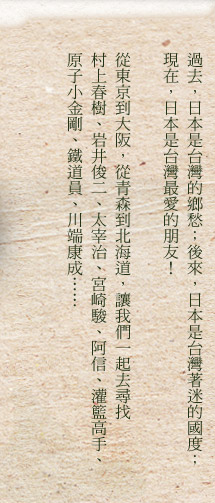 過去，日本是台灣的鄉愁；後來，日本是台灣著迷的國度；
現在，日本是台灣最愛的朋友！
從東京到大阪，從青森到北海道，讓我們一起去尋找
村上春樹、岩井俊二、太宰治、宮崎駿、阿信、灌籃高手、
原子小金剛、鐵道員、川端康成……